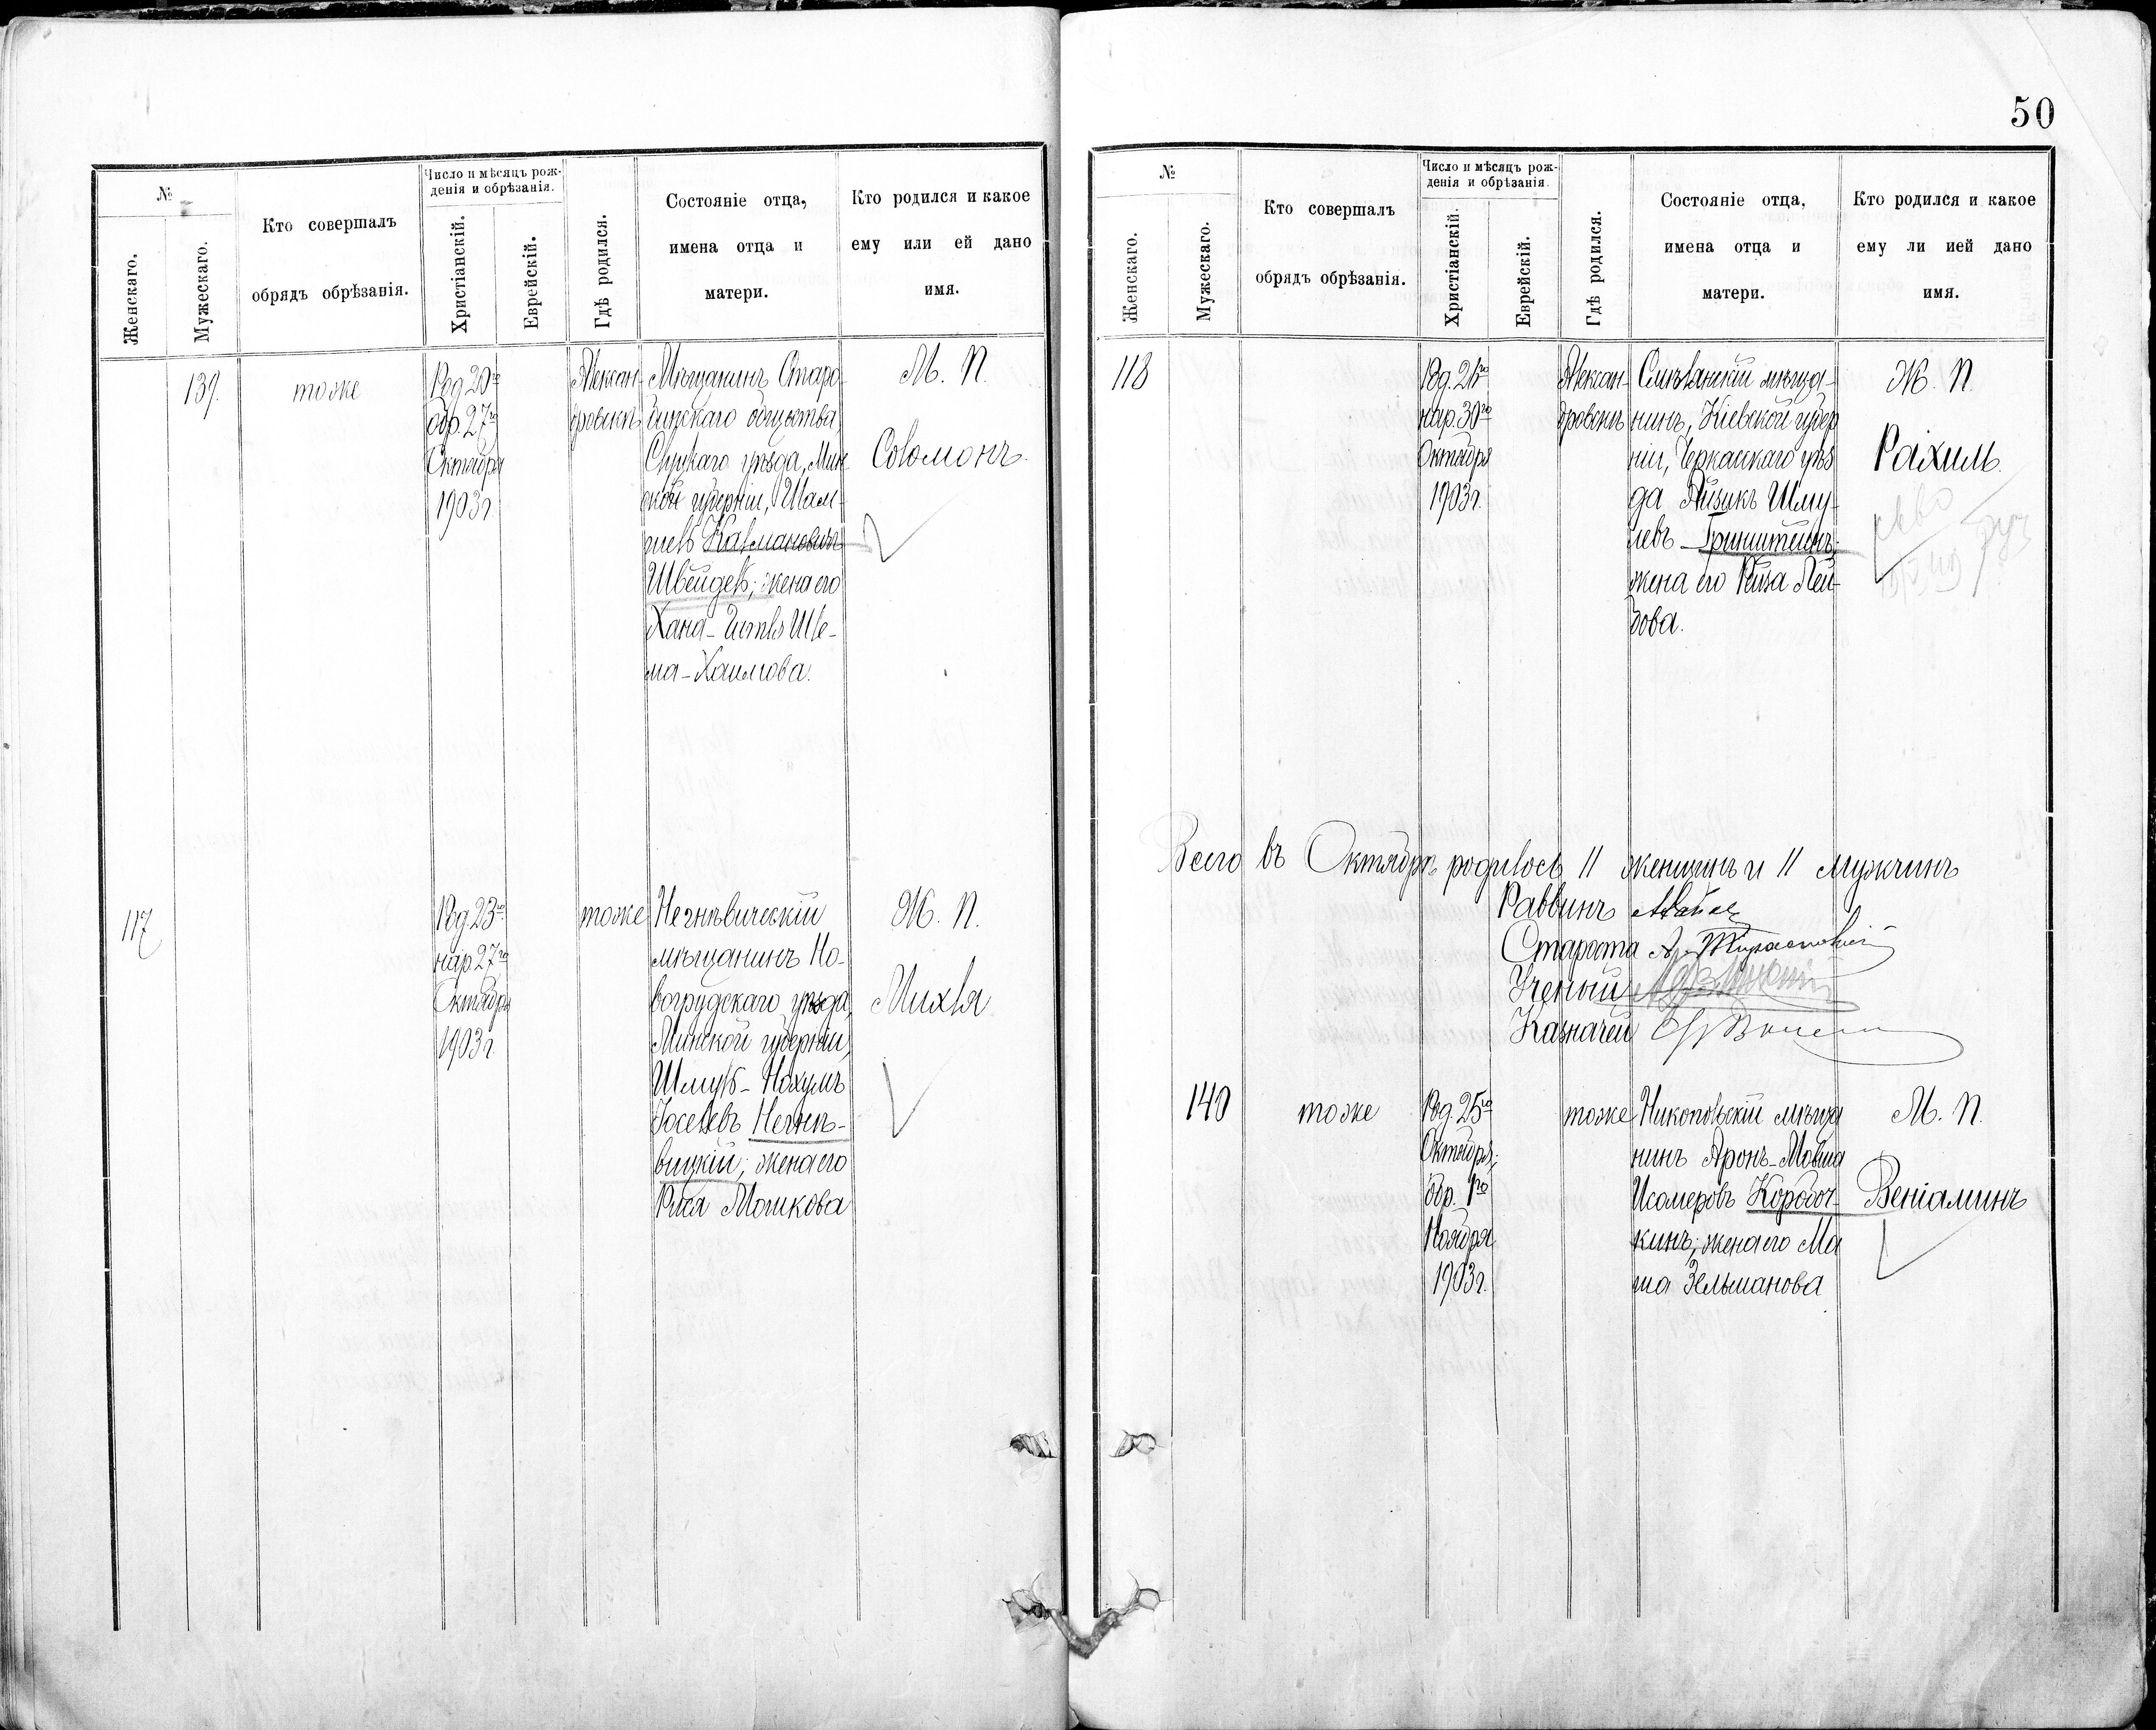 50
№
Женскаго.
Мужескаго.
Кто совершалъ
обрядъ обрѣзанія.
Число и мѣсяцъ рож-
денія и обрѣзанія.
Христіанскій.
Еврейскій.
Гдѣ родился.
Состояніе отца,
имена отца и
матери.
Кто родился и какое
ему или ей дано
имя.
139.
тоже
Род. 20го
обр. 27го
Октября
1903 г.
Алексан-
дровскъ
Мѣщанинъ Старо-
бинскаго общества,
Слуцкаго уѣзда, Мин-
ской губерніи, Шам-
Калмановичъ
Швейдель; жена его
Хана-
ма-Хаимова.
М. П.
Соломонъ
117
Род. 23го
нар. 27го
Октября
1903 г.
тоже
Негнѣвическій
мѣщанинъ Но-
вогрудскаго уѣзда,
Минской губерніи,
Шмуль-Нохумъ
Іоселевъ Негнѣ-
вицкій; жена его
Рися Мошкова
Ж. П.
Михля
№
Женскаго.
Мужескаго.
Кто совершалъ
обрядъ обрѣзанія.
Число и мѣсяцъ рож-
денія и обрѣзанія.
Христіанскій.
Еврейскій.
Гдѣ родился.
Состояніе отца,
имена отца и
матери.
Кто родился и какое
ему ли ией дано
имя.
118
нар. 30го
Октября
1903 г.
Алексан-
дровскъ
Смѣлянскій мѣща-
нинъ, Кіевской губер
ніи, Черкасскаго уѣз
да Айзикъ Шму-
левъ Гринштейнъ;
жена его Рейза Лей-
бова.
Ж. П.
Рахиль.
Всего въ Октябрѣ родилось 11 женщинъ и 11 мужчинъ
Раввинъ
Староста
Ученый
Казначей
140
тоже
Род. 25го
Октября;
обр. 1го
Ноября
1903 г.
тоже
Никопольскій мѣща
нинъ Аронъ-Мовша
Исомеровъ Коробоч-
кинъ; жена его Ма
ша Зельманова
М. П.
Веніаминъ